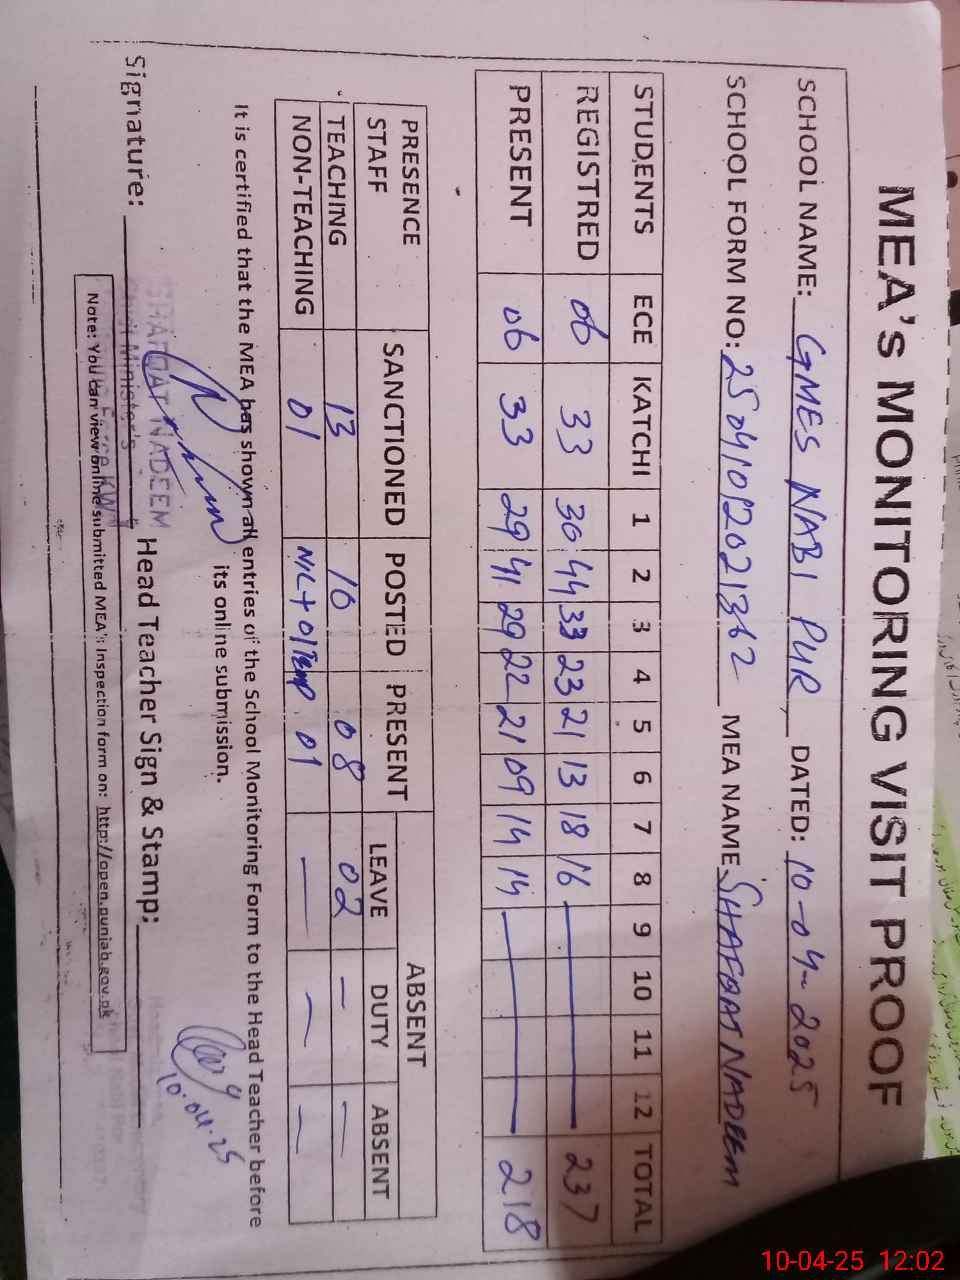 MEA's MONITORING VISIT PROOF
SCHOOL NAME: GMES NABI PUR, DATED: 10-04-2025
SCHOOL FORM NO: MEA NAME SHAFQAT NADEEM
STUDENTS ECE KATCHI 1 2 3 4 5 6 7 8 9 10 11 12 TOTAL
REGISTRED 06 33 30 44 33 23 21 13 18 16 — 237
PRESENT 06 33 29 41 29 22 21 09 14 14 — 218
PRESENCE STAFF SANCTIONED POSTED PRESENT ABSENT
LEAVE DUTY ABSENT
TEACHING 13 10 08 02 — —
NON-TEACHING 01 NIL+01Temp 01 — — —
It is certified that the MEA has shown all entries of the School Monitoring Form to the Head Teacher before
its online submission.
Signature: Head Teacher Sign & Stamp:
SHAFQAT NADEEM
Chief Minister's
10.04.25
Note: You can view online submitted MEA's Inspection form on: http://open.punjab.gov.pk
10-04-25 12:02